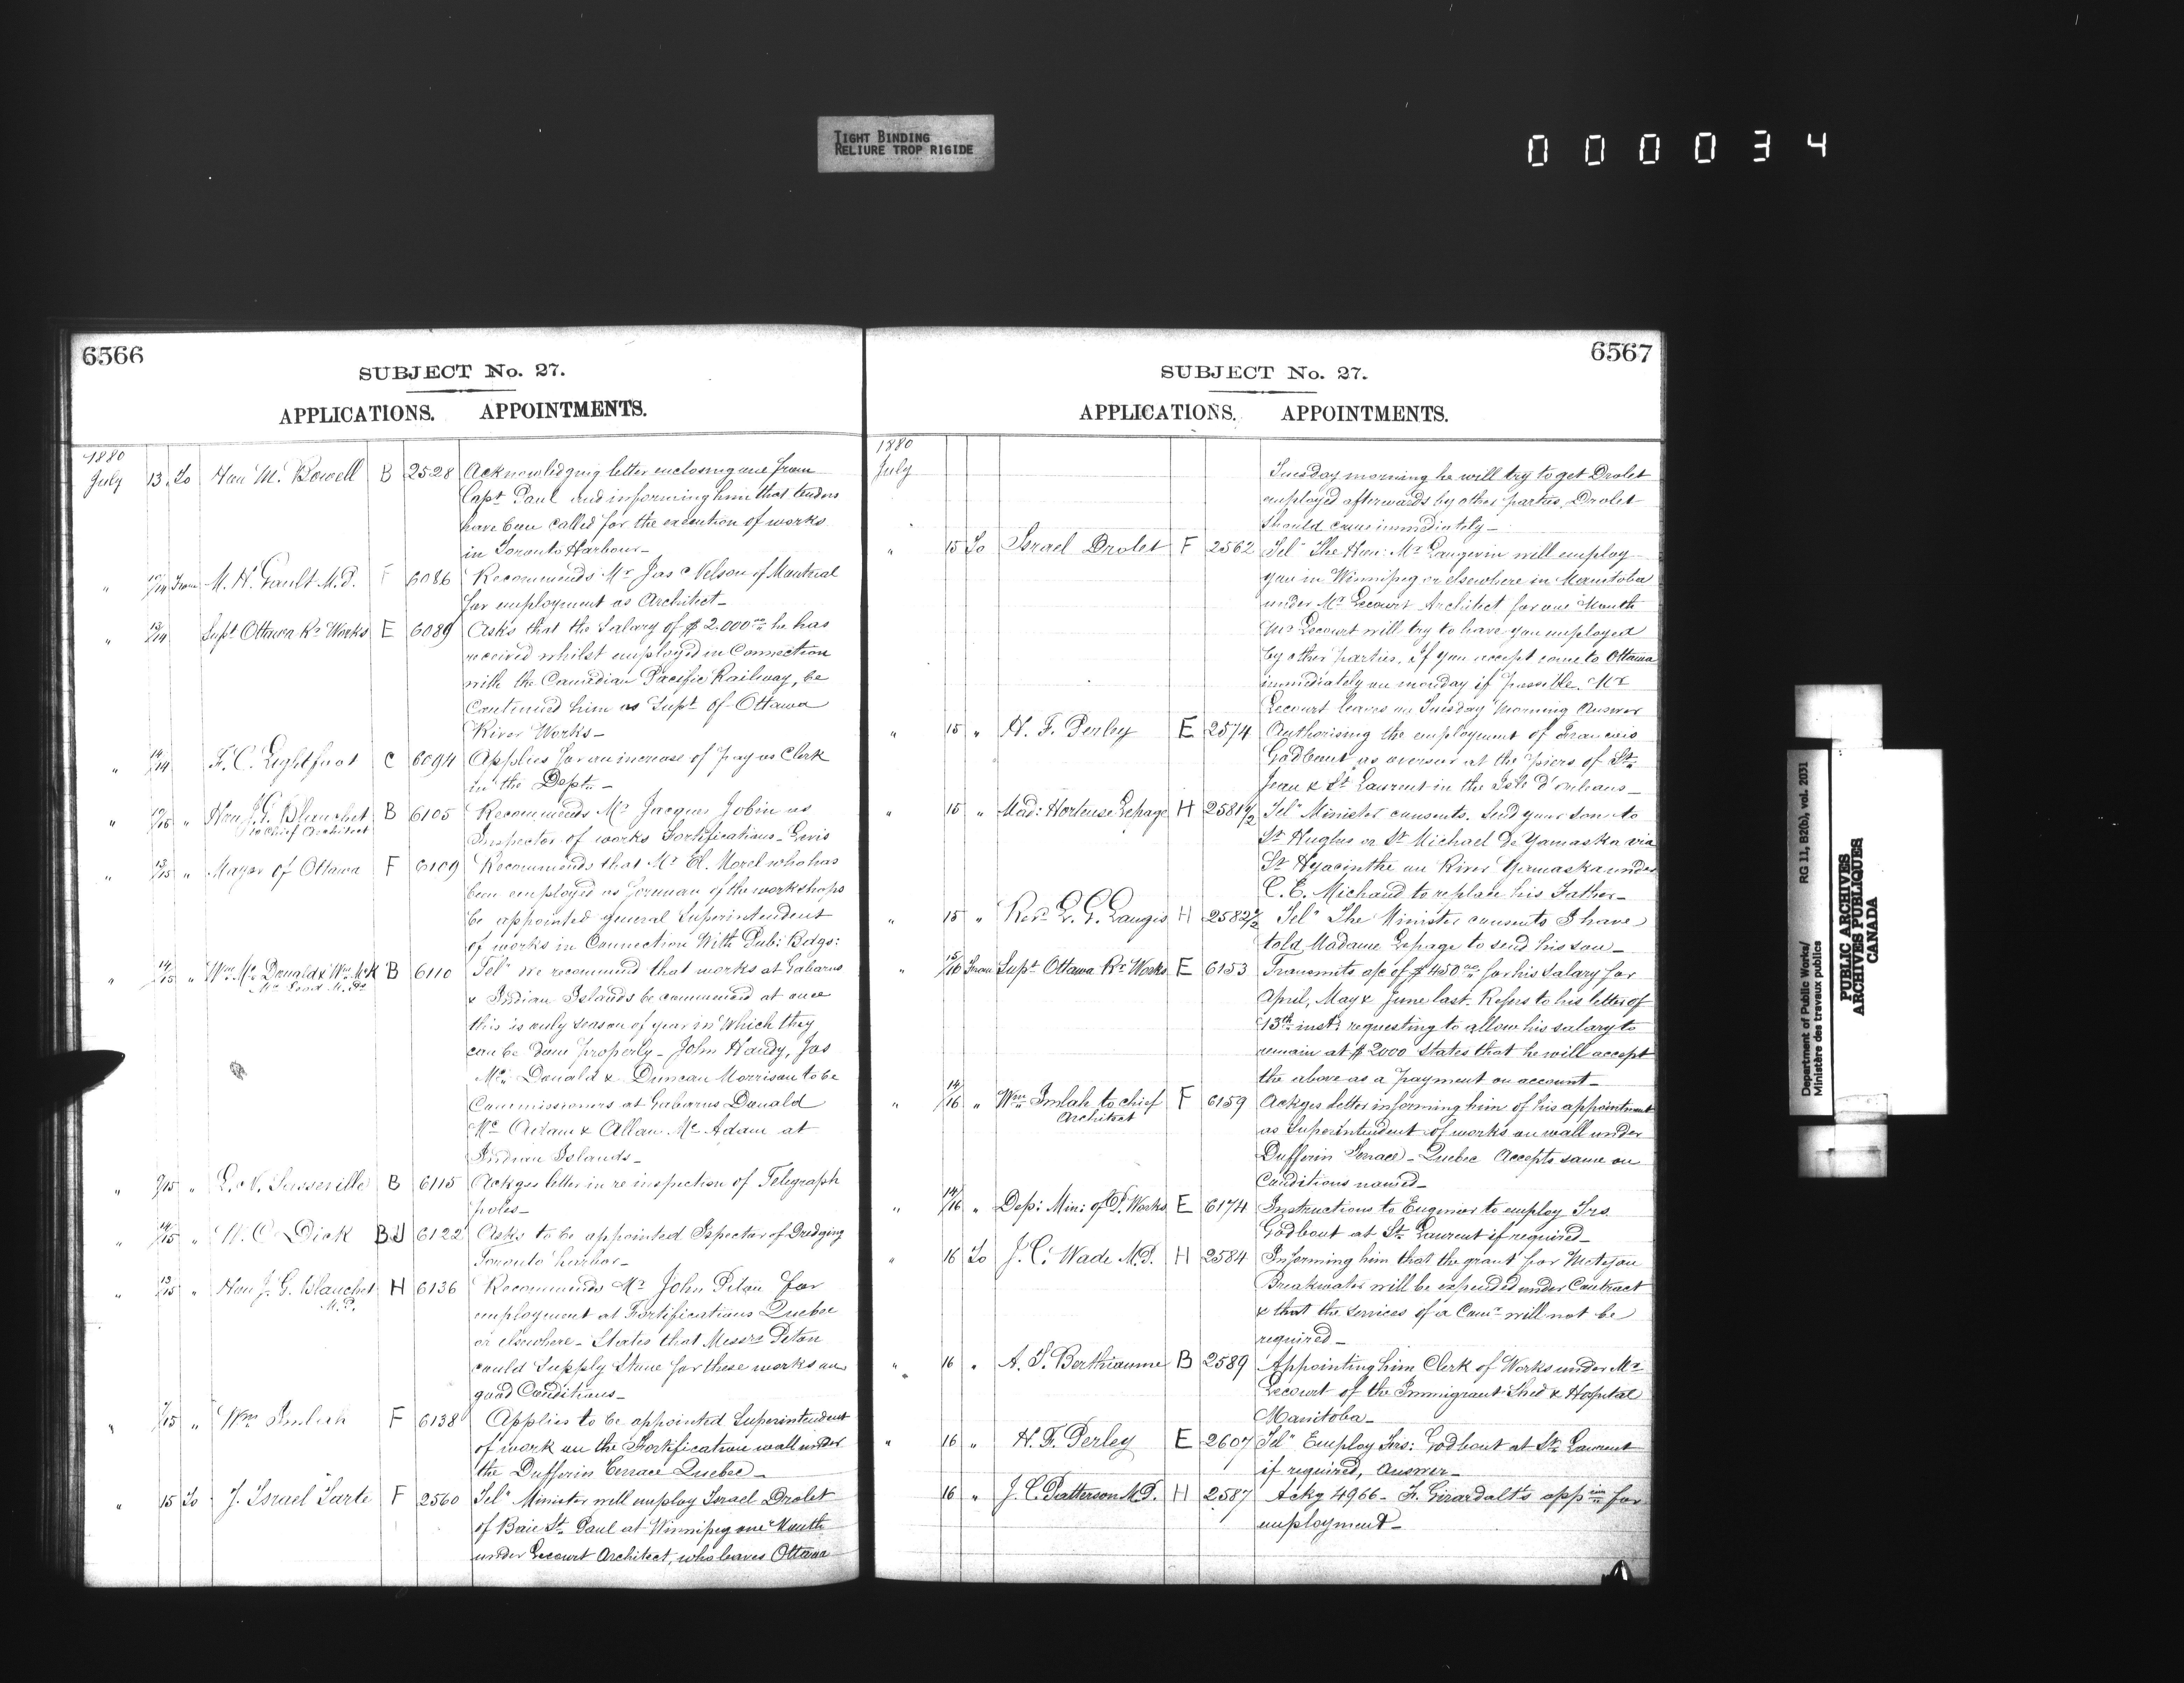 TIGHT BINDING
RELIURE TROP RIGIDE
000034
6566
SUBJECT No. 27.
APPLICATIONS. APPOINTMENTS.
1880
July 13 To Hon M. Bowell B 2528 Acknowledging letter enclosing one from
Capt Paul and informing him that tenders
have been called for the execution of works
in Toronto Harbour_
" 13/14 From M. H. Gault M.P. F 6086 Recommends Mr Jas Nelson of Montreal
for employment as Architect_
" 13/14 Supt Ottawa Rr Works E 6089 Asks that the Salary of $2.000 00 he has
received whilst employed in Connection
with the Canadian Pacific Railway, be
Continued him as Supt of Ottawa
River Works_
" 14/14 F. C. Lightfoot C 6094 Applies for an increase of pay as Clerk
in the Dept_
" /15 " Hon J. G. Blanchet B 6105 Recommends Mr Jacques Jobin as
to Chief Architect
Inspector of works Fortifications_ Levis
" 13/15 " Mayor of Ottawa F 6109 Recommends that Mr El. Morel who has
been employed as foreman of the workshops
be appointed general Superintendent
of works in Connection With Pub: Bdgs:
" 14/15 " Wm Mc Donald & Wm McK B 6110 Tel" We recommend that works at Gabarus
& Indian Islands be commenced at once
this is only season of year in which they
can be done properly_ John Hardy, Jas
Mc Donald & Duncan Morrison to be
Commissioners at Gabarus Donald
Mc Adam & Allan Mc Adam at
Indian Islands_
" /15 " B 6115 Ackges letter in re inspection of Telegraph
poles_
" 14/15 " W. C. Dick BJ 6122 Asks to be appointed Ispector of Dredging
Toronto harbor_
" 13/15 " Hon J. G. Blanchet H 6136 Recommends Mr John Piton for
M.P.
employment at Fortifications Quebec
or elsewhere_ States that Messrs Peton
could Supply Stone for these works on
good Conditions_
" /15 " Wm Imlah F 6138 Applies to be appointed Superintendent
of work on the Fortification wall under
the Dufferin Terrace Quebec_
" 15 To J. Israel Tarte F 2560 Tel" Minister will employ Israel Drolet
of Baie St Paul at Winnipeg one Month
under Lecourt Architect, who leaves Ottawa
6567
SUBJECT No. 27.
APPLICATIONS. APPOINTMENTS.
1880
July Tuesday morning he will try to get Drolet
employed afterwards by other parties, Drolet
should come immediately_
" 15 To Israel Drolet F 2562 Tel" The Hon: Mr Langevin will employ
you in Winnipeg or elsewhere in Manitoba
under Mr Lecourt Architect for one Month
Mr Lecourt will try to have you employed
by other parties, if you accept come to Ottawa
immediately on monday if possible. Mr
Lecourt leaves on Tuesday Morning Answer
" 15 " H. F. Perley E 2574 Authorising the employment of Francois
Godbout as overseer at the piers of St
Jean & St Laurent in the Isle d'orleans_
" 15 " Mad: Hortense Lepage H 2581 1/2 Tel" Minister consents. Send your son to
St Hughes or St Michael De Yamaska via
St Hyacinthe on River Yamaska under
C. E. Michaud to replace his Father_
" 15 " Revd L. G. Langis H 2582 1/2 Tel" The Minister consents I have
told Madame Lepage to send his son_
" 15/16 From Supt Ottawa Rr Works E 6153 Transmits a/c of $450 00 for his salary for
April, May & June last. Refers to his letter of
13th inst: requesting to allow his salary to
remain at $2000 States that he will accept
the above as a payment on account_
" 14/16 " Wm Imlah to chief F 6159 Ackges letter informing him of his appointment
Architect
as Superintendent of works on wall under
Dufferin Terrace_ Quebec Accepts same on
Conditions named_
" 14/16 " Dep: Min: of P. Works E 6174 Instructions to Engineer to employ Frs
Godbout at St Laurent if required_
" 16 To J. C. Wade M.P. H 2584 Informing him that the grant for Meteyan
Breakwater will be expended under Contract
& that the services of a Comr will not be
required_
" 16 " A. S. Berthiaume B 2589 Appointing him Clerk of Works under Mr
Lecourt of the Immigrant Shed & Hospital
Manitoba_
" 16 " H. F. Perley E 2607 Tel" Employ Frs: Godbout at St Laurent
if required, Answer_
16 " J. C. Patterson M.P. H 2587 Ackg 4966_ F. Girardalt's appin for
employment_
Department of Public Works/ RG 11, B2(b), vol. 2031
Ministère des travaux publics
PUBLIC ARCHIVES
ARCHIVES PUBLIQUES
CANADA